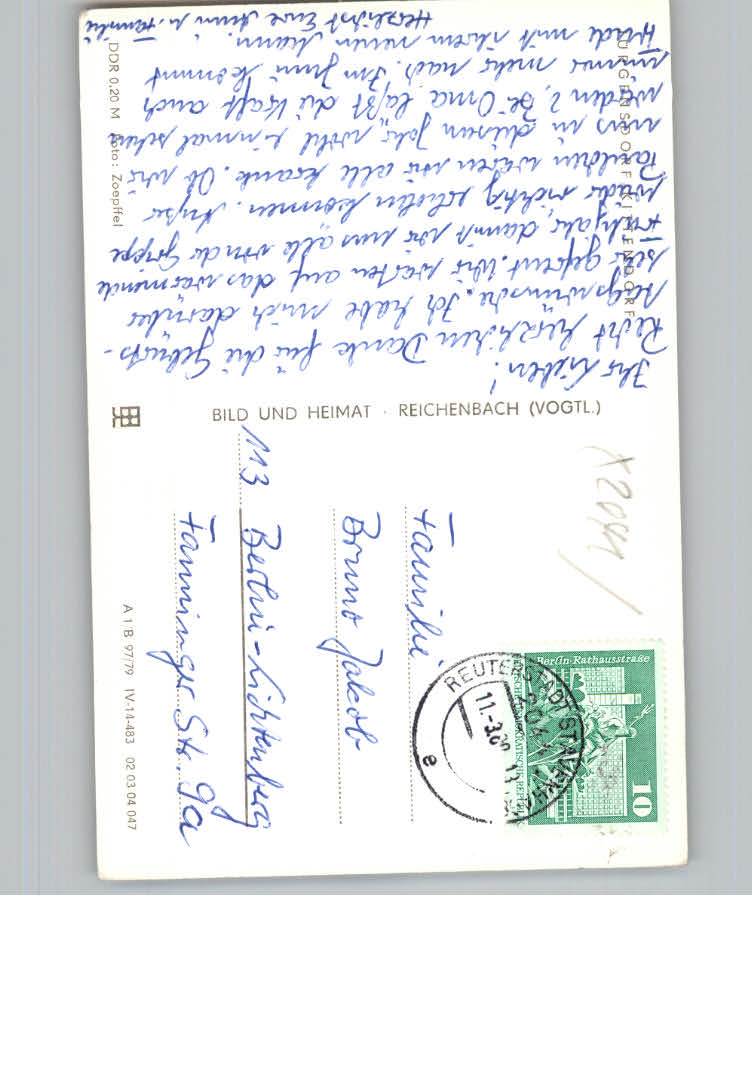 JÜRGENSDORF KITTENDORF
Ihr Lieben!
Recht herzlichen Dank für die Geburts-
tagswünsche. Ich habe mich darüber
sehr gefreut. Wir warten auf das wärmende
Frühjahr, damit wir uns alle von der Grippe
wieder richtig erholen können. Außer
waren wir alle krank. Ob wir
uns in diesem Jahr wohl einmal sehen
werden? Bei Oma läßt die Kraft auch
immer mehr nach. Im Juni kommt
mit ihrem neuen Mann.
Herzlichst Eure u. Familie
DDR 0,20 M Foto: Zoepffel
BILD UND HEIMAT · REICHENBACH (VOGTL.)
A 1/B 97/79 IV-14-483 02 03 04 047
Familie
Bruno Jakob
113 Berlin-Lichtenberg
Fanninger Str. 9a
Berlin-Rathausstraße
10
REUTERSTADT STAVENHAGEN
11.-3.
2044
e